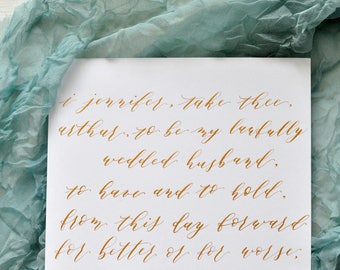 i jennifer, take thee,
arthur, to be my lawfully
wedded husband,
to have and to hold,
from this day forward
for better or for worse,